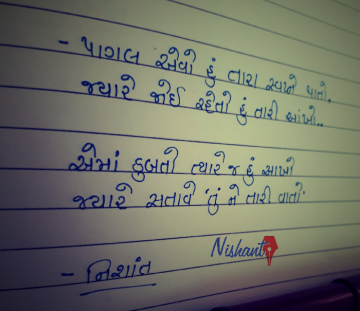 - પાગલ એવો હું તારા સ્વપ્ને પાતો.
જ્યારે જોઈ રહેતો હું તારી આંખો..
એમાં ડુબતો ત્યારે જ હું આખો
જ્યારે સતાવે 'તું ને તારી વાતો'
Nishant
- નિશાંત